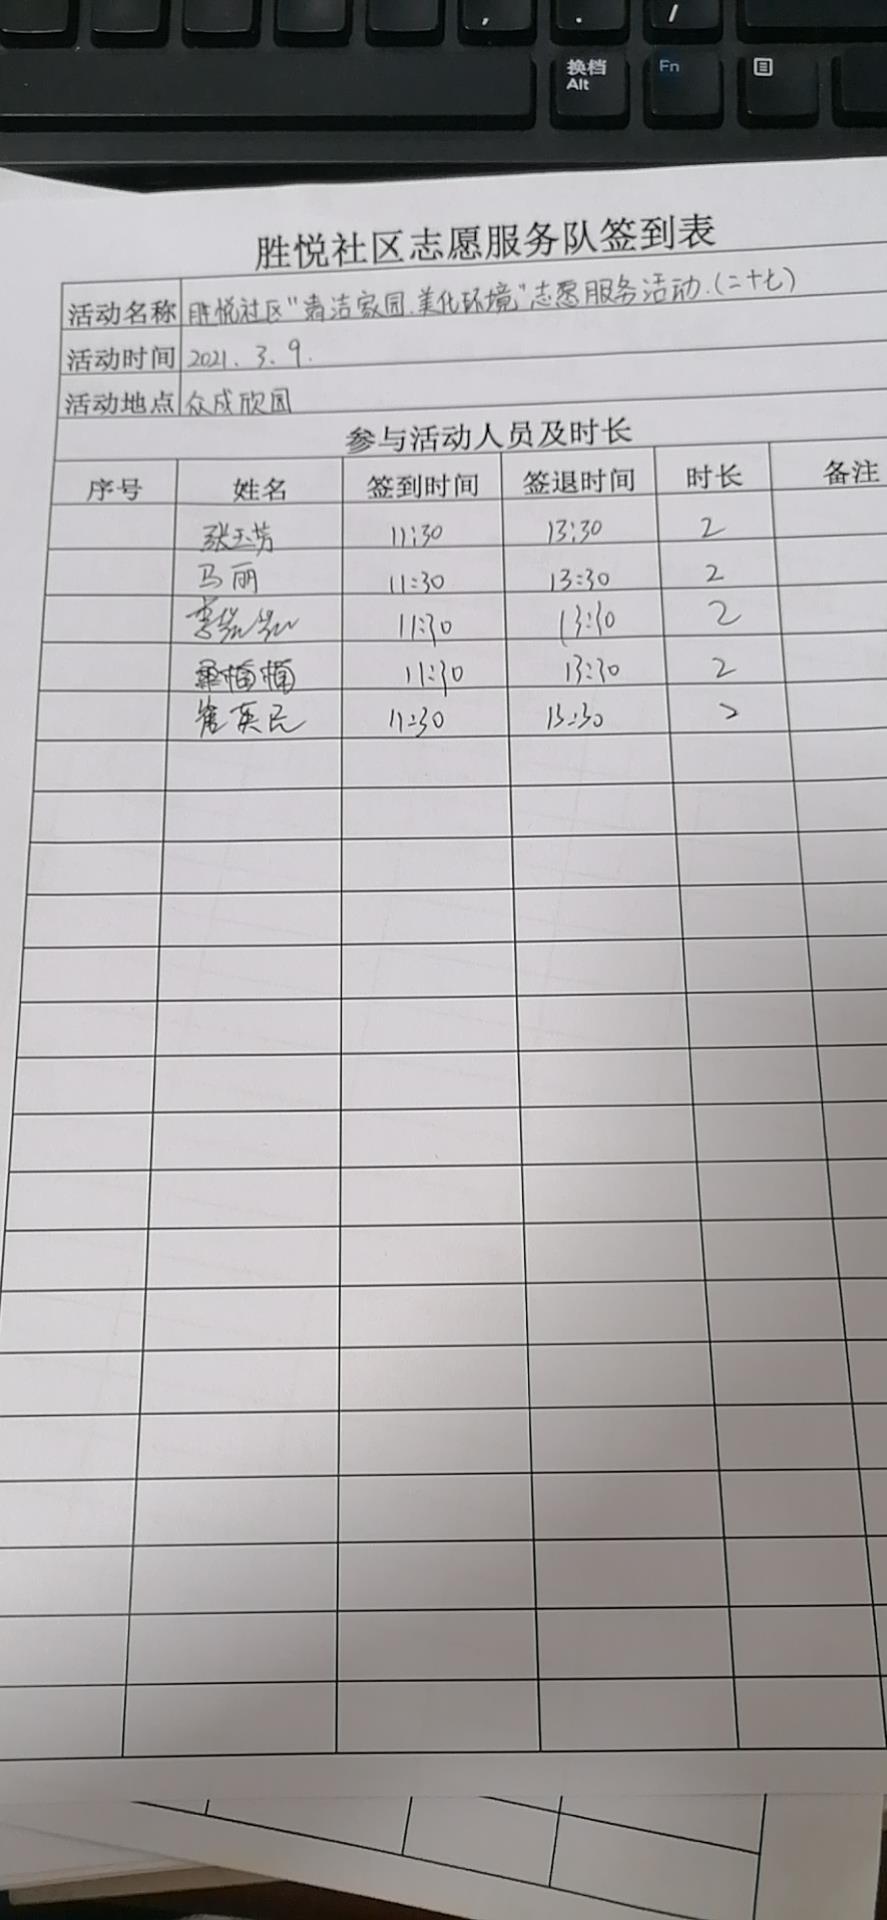 , . /
换档 Fn
Alt
胜悦社区志愿服务队签到表
活动名称 胜悦社区"清洁家园.美化环境"志愿服务活动.(二十七)
活动时间 2021.3.9.
活动地点 众成欣园
参与活动人员及时长
序号 姓名 签到时间 签退时间 时长 备注
张玉芳 11:30 13:30 2
马丽 11:30 13:30 2
11:30 13:30 2
11:30 13:30 2
崔英民 11:30 13:30 2